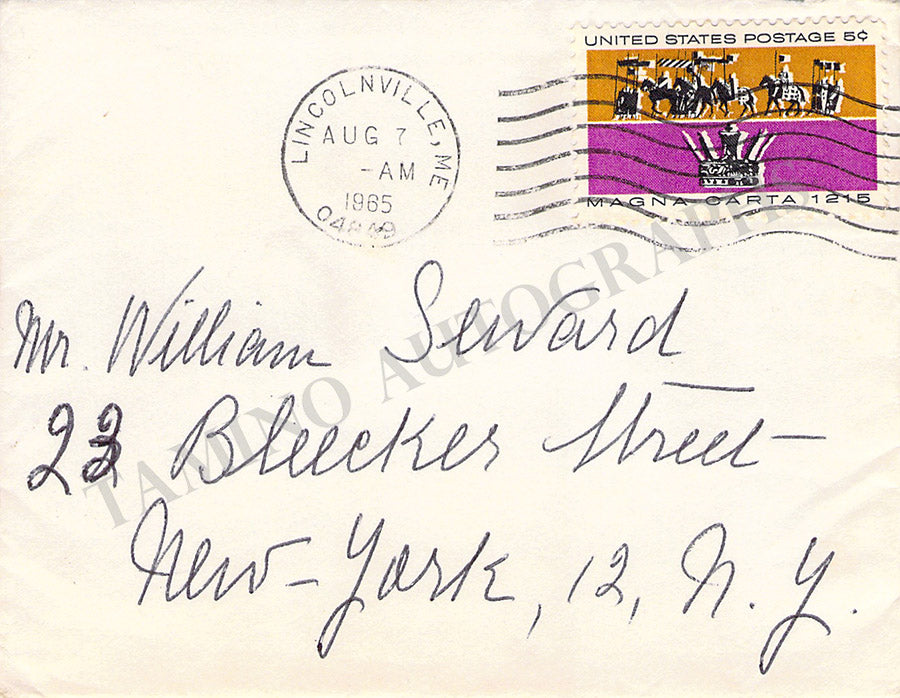 UNITED STATES POSTAGE 5¢
MAGNA CARTA 1215
LINCOLNVILLE, ME
AUG 7
-AM
1965
04849
Mr. William Seward
23 Bleecker Street
New-York, 12, N.Y.
TAMINO AUTOGRAPHS